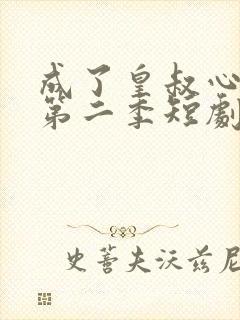 成了皇叔心
第二季短劇
史蒈夫沃茲尼